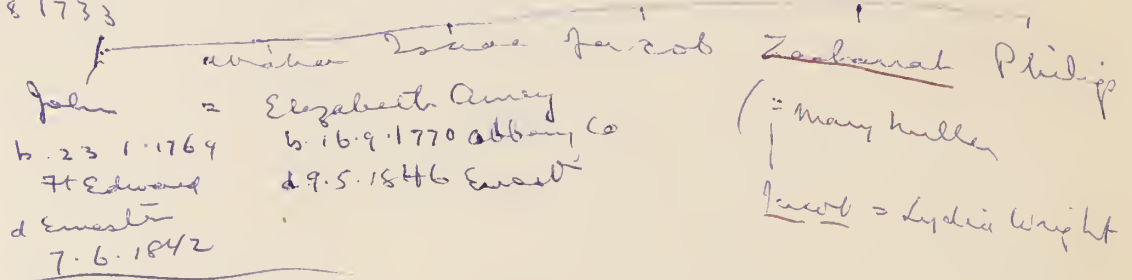 8 1733
Isaac Jacob Zachariah Philip
John = Elizabeth Amey
b. 23 1.1769 b. 16.9.1770 Albany Co
Ft Edward d 9.5.1846 Ernest
d Ernest
7.6.1842
= Mary Miller
Jacob = Lydia Wright